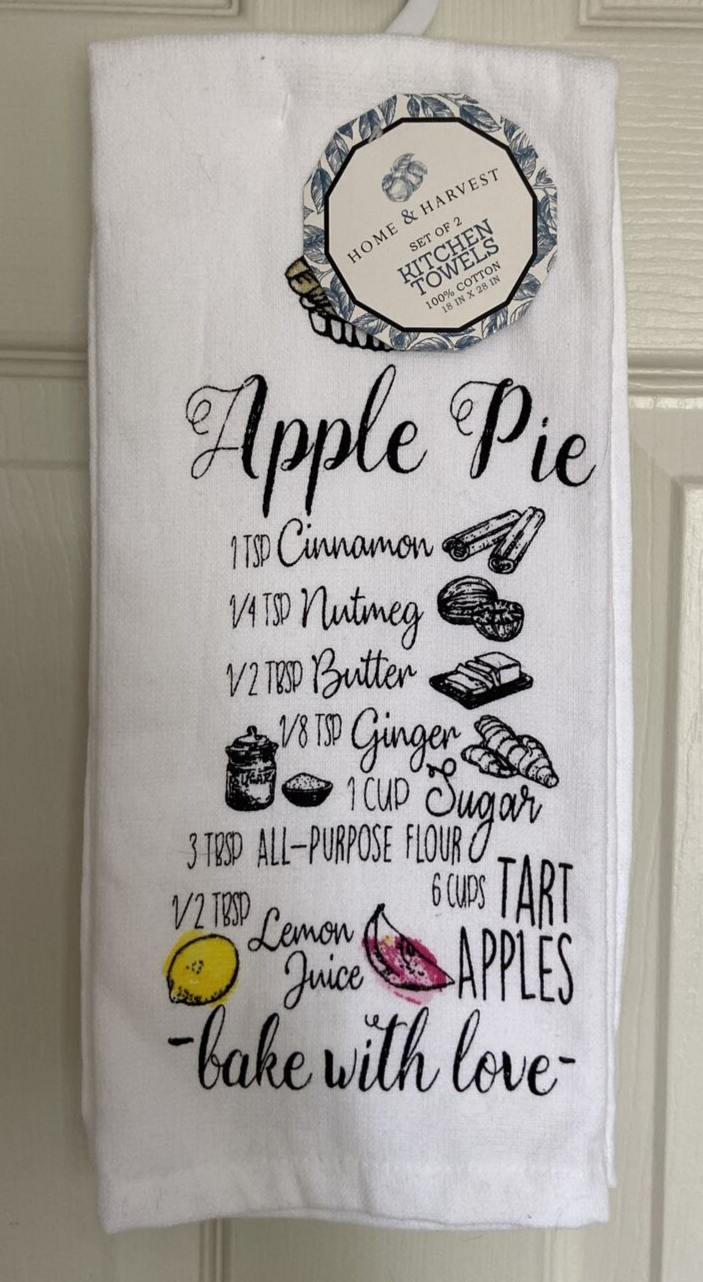 HOME & HARVEST
SET OF 2
KITCHEN
TOWELS
100% COTTON
18 IN X 28 IN
Apple Pie
1 TSP Cinnamon
1/4 TSP Nutmeg
1/2 TBSP Butter
1/8 TSP Ginger
SUGAR
1 CUP Sugar
3 TBSP ALL-PURPOSE FLOUR
6 CUPS TART
APPLES
1/2 TBSP
Lemon
Juice
-bake with love-